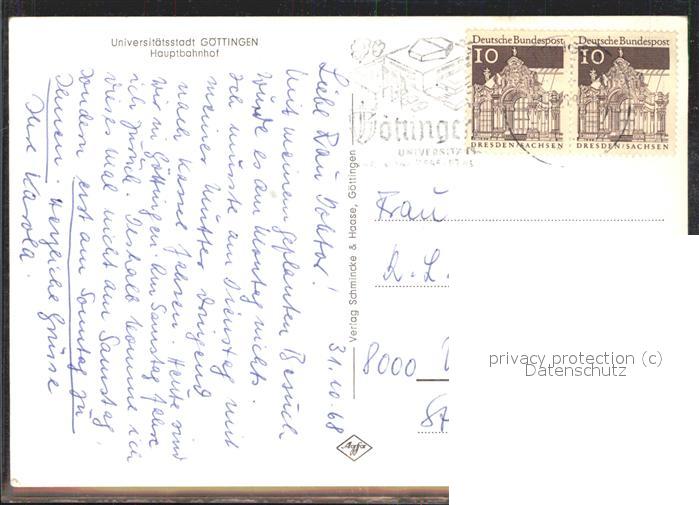 Universitätsstadt GÖTTINGEN
Hauptbahnhof
Liebe Frau Doktor!
31.10.68
Mit meinem geplanten Besuch
wurde es am Montag nichts.
Ich musste am Dienstag mit
meiner Mutter dringend
nach Kassel fahren. Heute sind
wir in Göttingen. Am Samstag fahre
ich zurück. Deshalb komme ich
dieses Mal nicht am Samstag,
sondern erst am Sonntag zu
Ihnen. Herzliche Grüsse
Ihre Karola.
Verlag Schmincke & Haase, Göttingen
Agfa
Göttingen
UNIVERSITÄ
Deutsche Bundespost
10
DRESDEN/SACHSEN
Deutsche Bundespost
10
DRESDEN/SACHSEN
Frau
8000
privacy protection (c)
Datenschutz